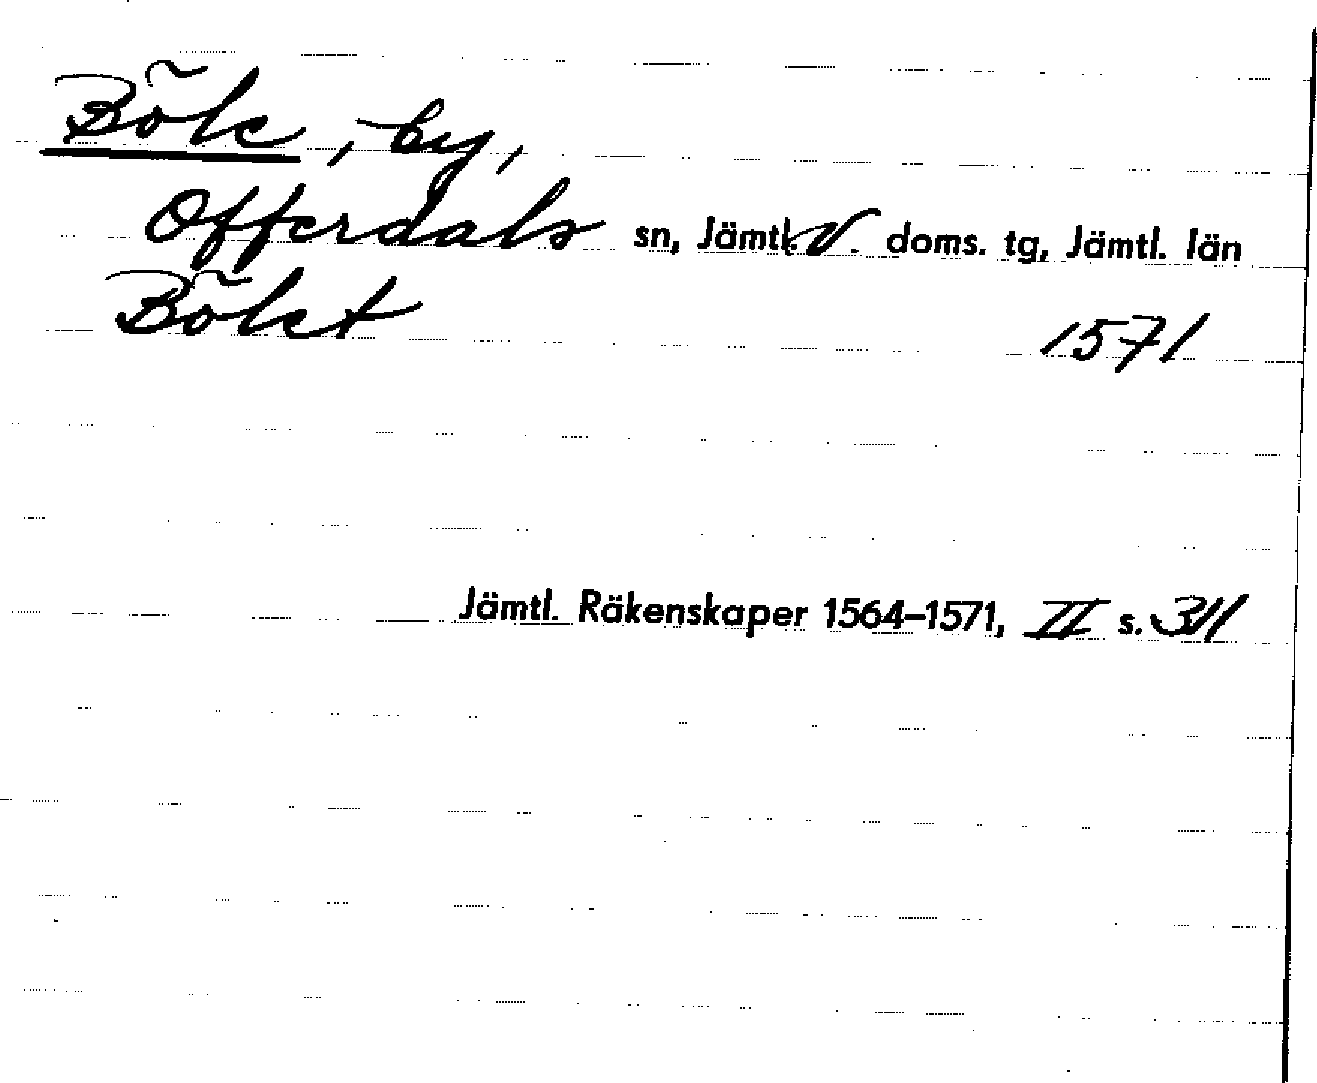 Böle, by,
Offerdals sn, Jämtl. V. doms. tg, Jämtl. län
Bölet 1571
Jämtl. Räkenskaper 1564–1571, II s. 311